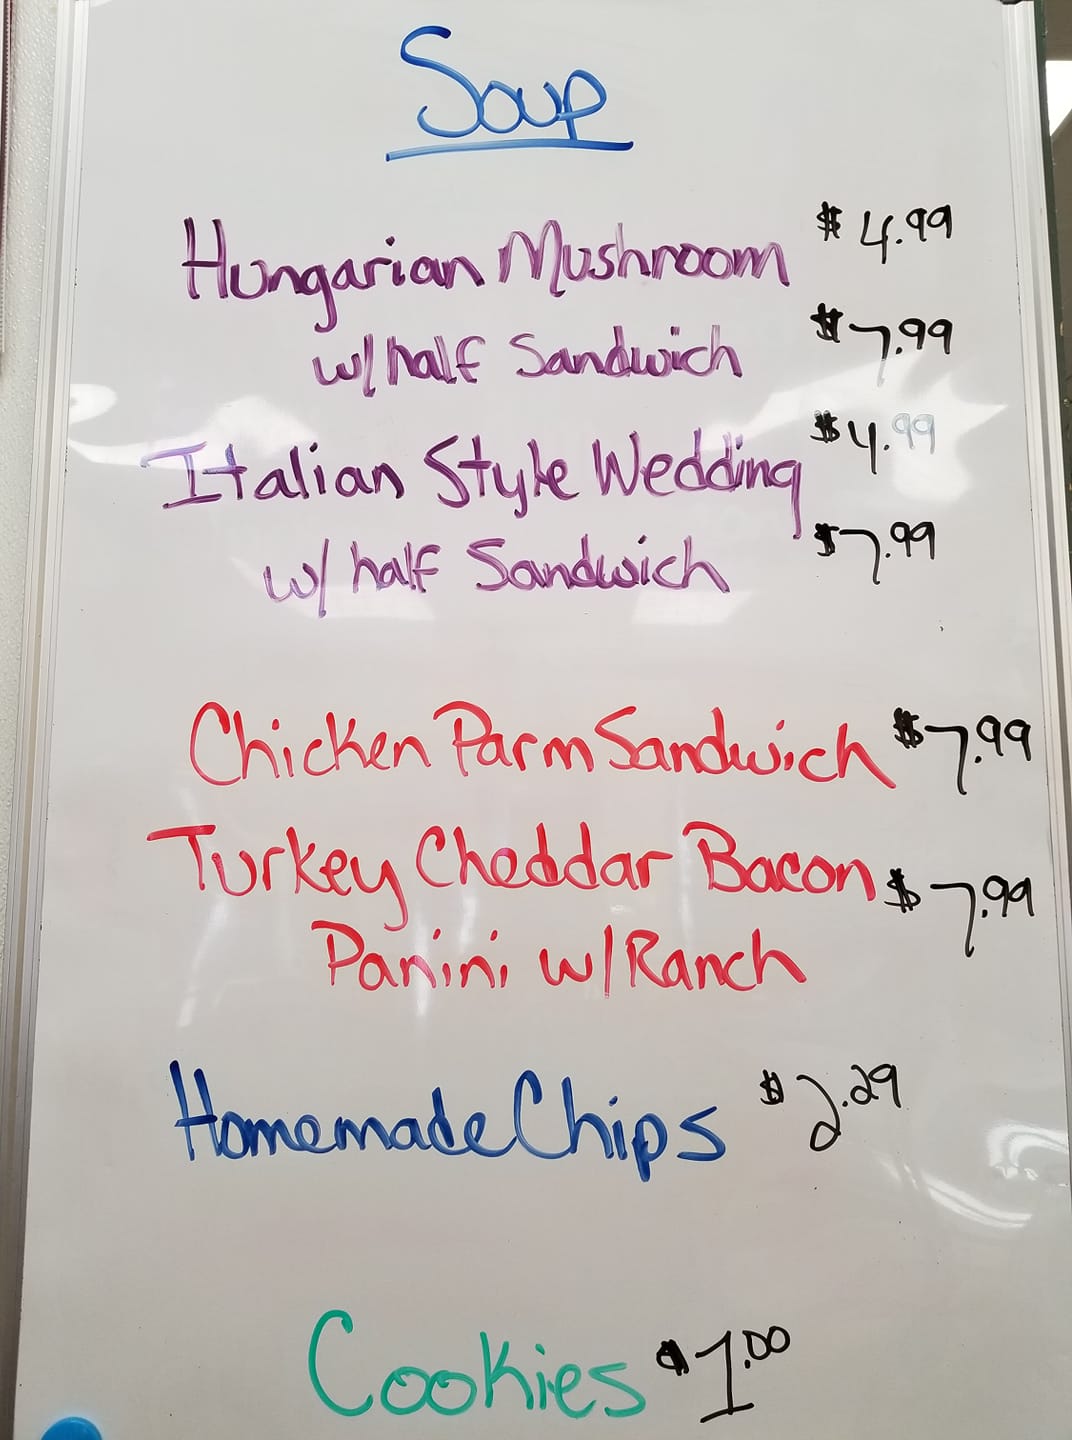 Soup
Hungarian Mushroom $4.99
w/half Sandwich $7.99
Italian Style Wedding $4.99
w/ half Sandwich $7.99
Chicken Parm Sandwich $7.99
Turkey Cheddar Bacon $7.99
Panini w/Ranch
Homemade Chips $2.29
Cookies $1.00